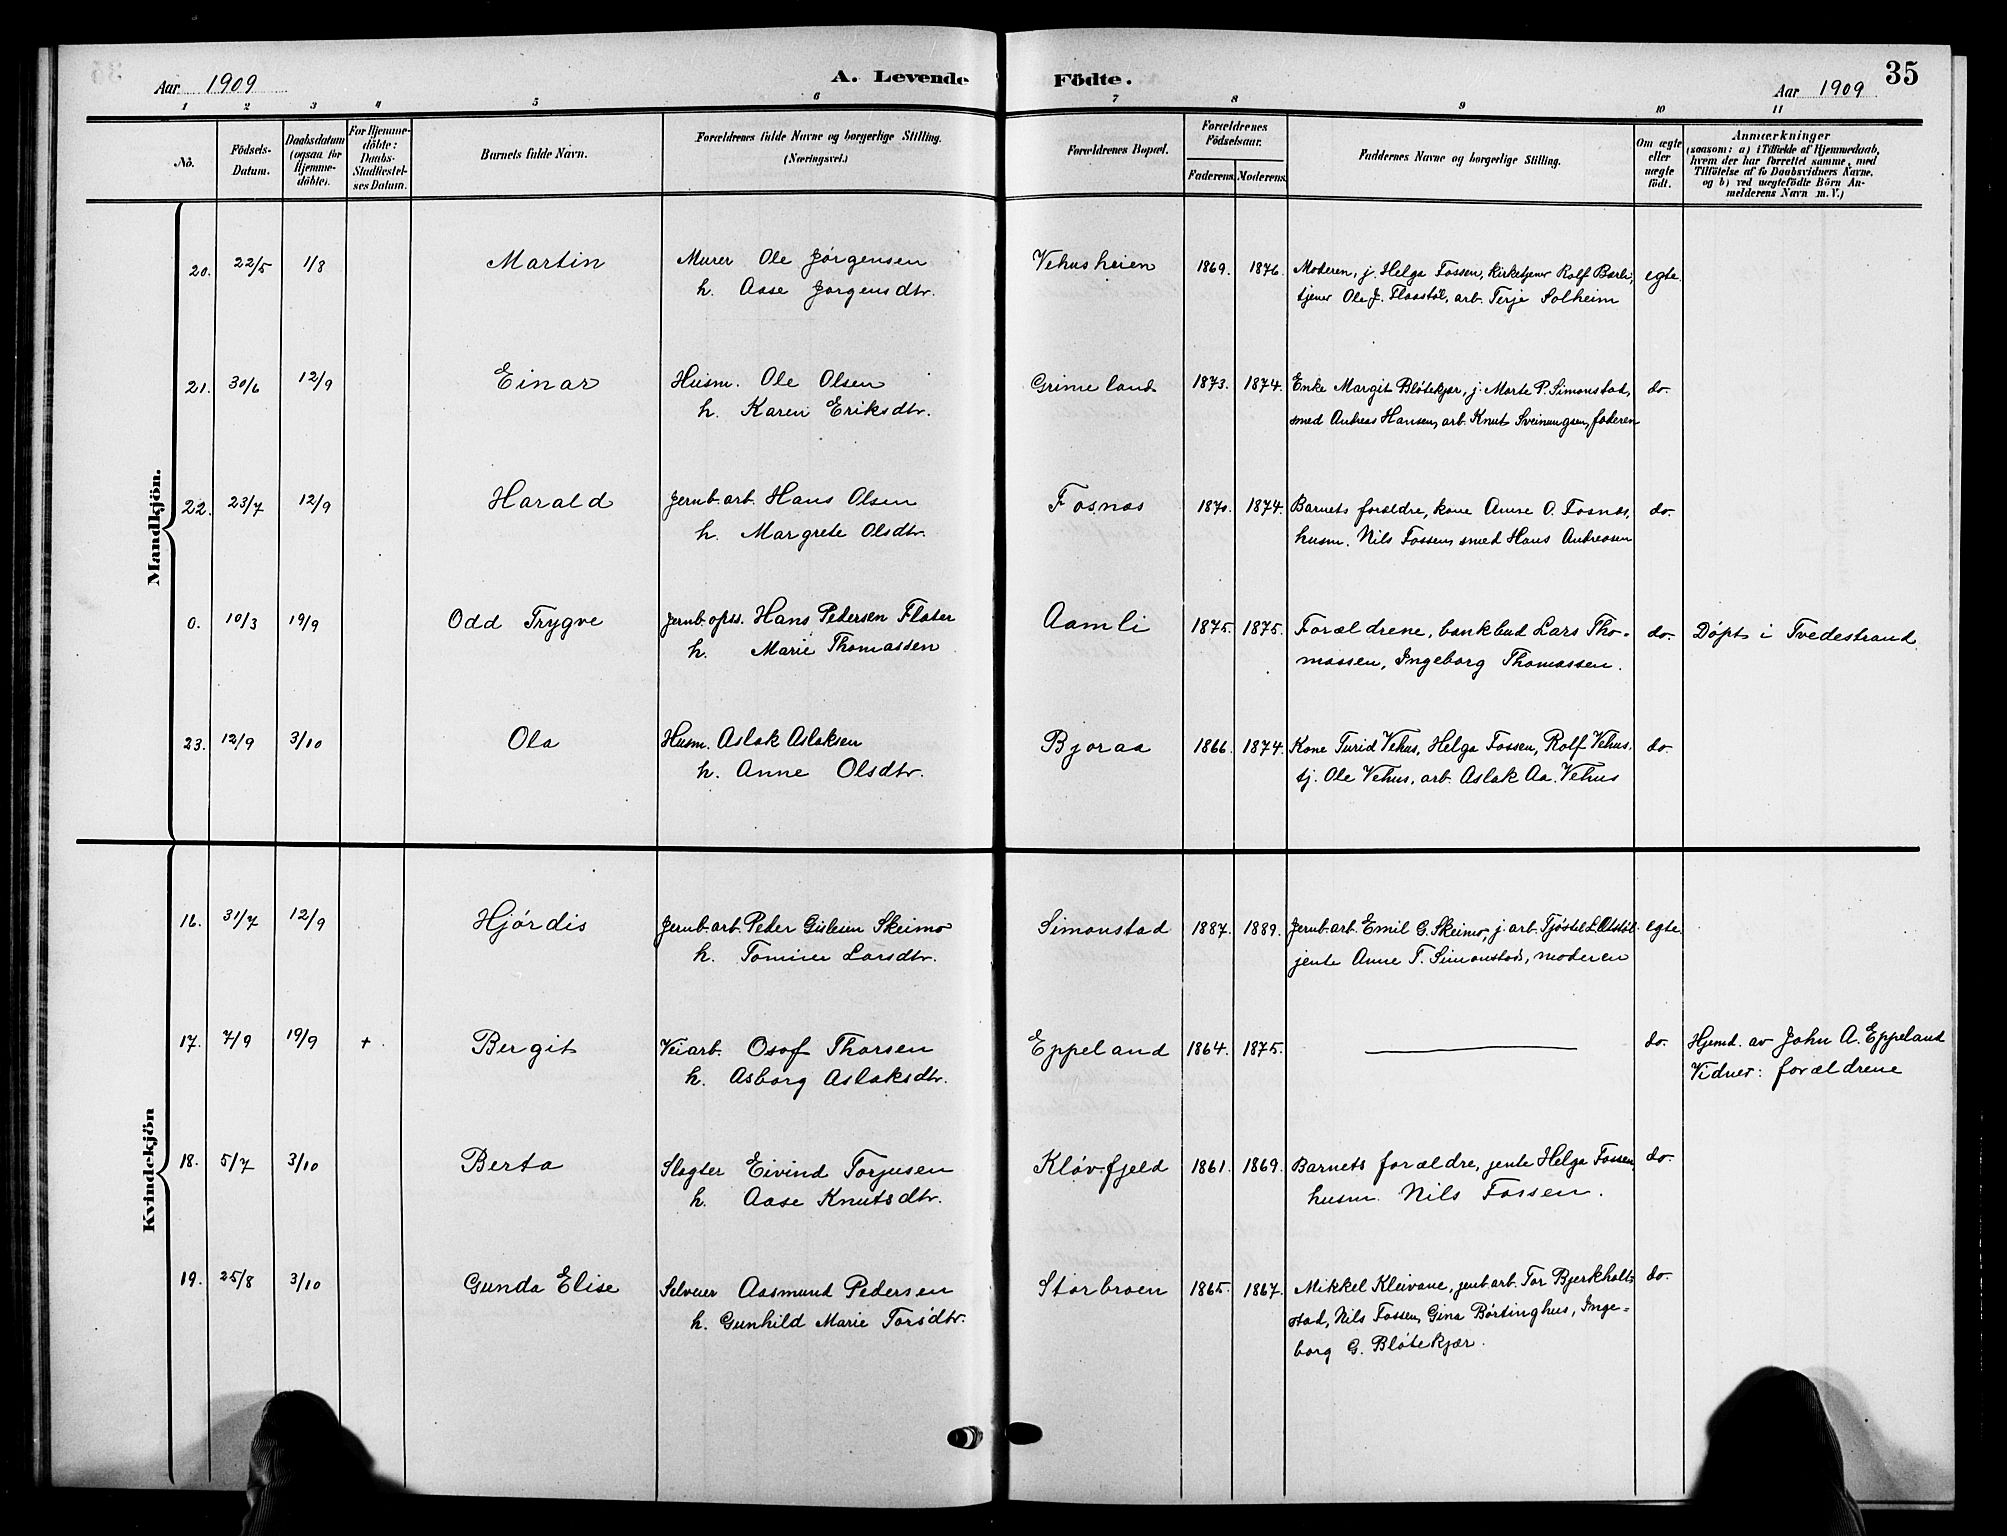 Aar 1909
A. Levende Födte.
Aar 1909
35
1 2 3 4 5 6 7 8 9 10 11
No.
Födsels-Datum.
Daabsdatum (ogsaa for Hjemmedöbte).
For Hjemmedöbte: Daabs-Stadfæstelses Datum.
Barnets fulde Navn.
Forældrenes fulde Navne og borgerlige Stilling. (Næringsvei.)
Forældrenes Bopæl.
Forældrenes Födselsaar.
Faderens. Moderens.
Faddernes Navne og borgerlige Stilling.
Om ægte eller uægte födt.
Anmærkninger
(saasom: a) i Tilfælde af Hjemmedaab, hvem der har forrettet samme, med Tilföielse af to Daabsvidners Navne, og b) ved uægtefödte Börn Anmelderens Navn m. V.)
Mandkjön.
20. 22/5 1/8 Martin Murer Ole Jørgensen Vehusheien 1869. 1876. Moderen, j. Helga Fossen, kirketjener Rolf Barli, egte.
h. Aase Jørgensdtr. tjener Ole J. Flaastøl, arb. Terje Solheim
21. 30/6 12/9 Einar Husm. Ole Olsen Grimeland 1873. 1874. Enke Margit Bløtekjær, j. Marte P. Simonstad, do.
h. Karen Eriksdtr. smed Andreas Hansen, arb. Knut Sveinungsen, faderen
22. 23/7 12/9 Harald Jernb.arb. Hans Olsen Fosnæs 1870. 1874. Barnets forældre, kone Anne O. Fosnæs, do.
h. Margrete Olsdtr. husm. Nils Fossen, smed Hans Andreasen
0. 10/3 19/9 Odd Trygve Jernb.opss. Hans Petersen Flater Aamli 1875. 1875. Forældrene, bankbud Lars Tho- do. Døpt i Tvedestrand
h. Marie Thomassen massen, Ingeborg Thomassen.
23. 12/9 3/10 Ola Husm. Aslak Aslaksen Bjoraa 1866. 1874. Kone Turid Vehus, Helga Fossen, Rolf Vehus, do.
h. Anne Olsdtr. tj. Ole Vehus, arb. Aslak Aa. Vehus
Kvindekjön
16. 31/7 12/9 Hjørdis Jernb.arb. Peder Gislesen Skeimo Simonstad 1887. 1889. Jernb.arb. Emil G. Skeimo, j. arb. Tjøstel L. egte.
h. Tomine Larsdtr. jente Anne T. Simonstad, moderen
17. 7/9 19/9 + Bergit Veiarb. Osof Thorsen Eppeland 1864. 1875. do. Hjemd. av John A. Eppeland
h. Asborg Aslaksdtr. Vidner: forældrene
18. 5/7 3/10 Berta Slagter Eivind Torjusen Kløvfjeld 1861. 1869. Barnets forældre, jente Helga Fossen do.
h. Aase Knutsdtr. husm. Nils Fossen.
19. 25/8 3/10 Gunda Elise Selveier Aasmund Pedersen Storbroen 1865. 1867. Mikkel Kleivane, jernb.arb. Tor Bjerkholt- do.
h. Gunhild Marie Torsdtr. stad, Nils Fossen, Gina Børtinghus, Inge-
borg G. Bløtekjær.